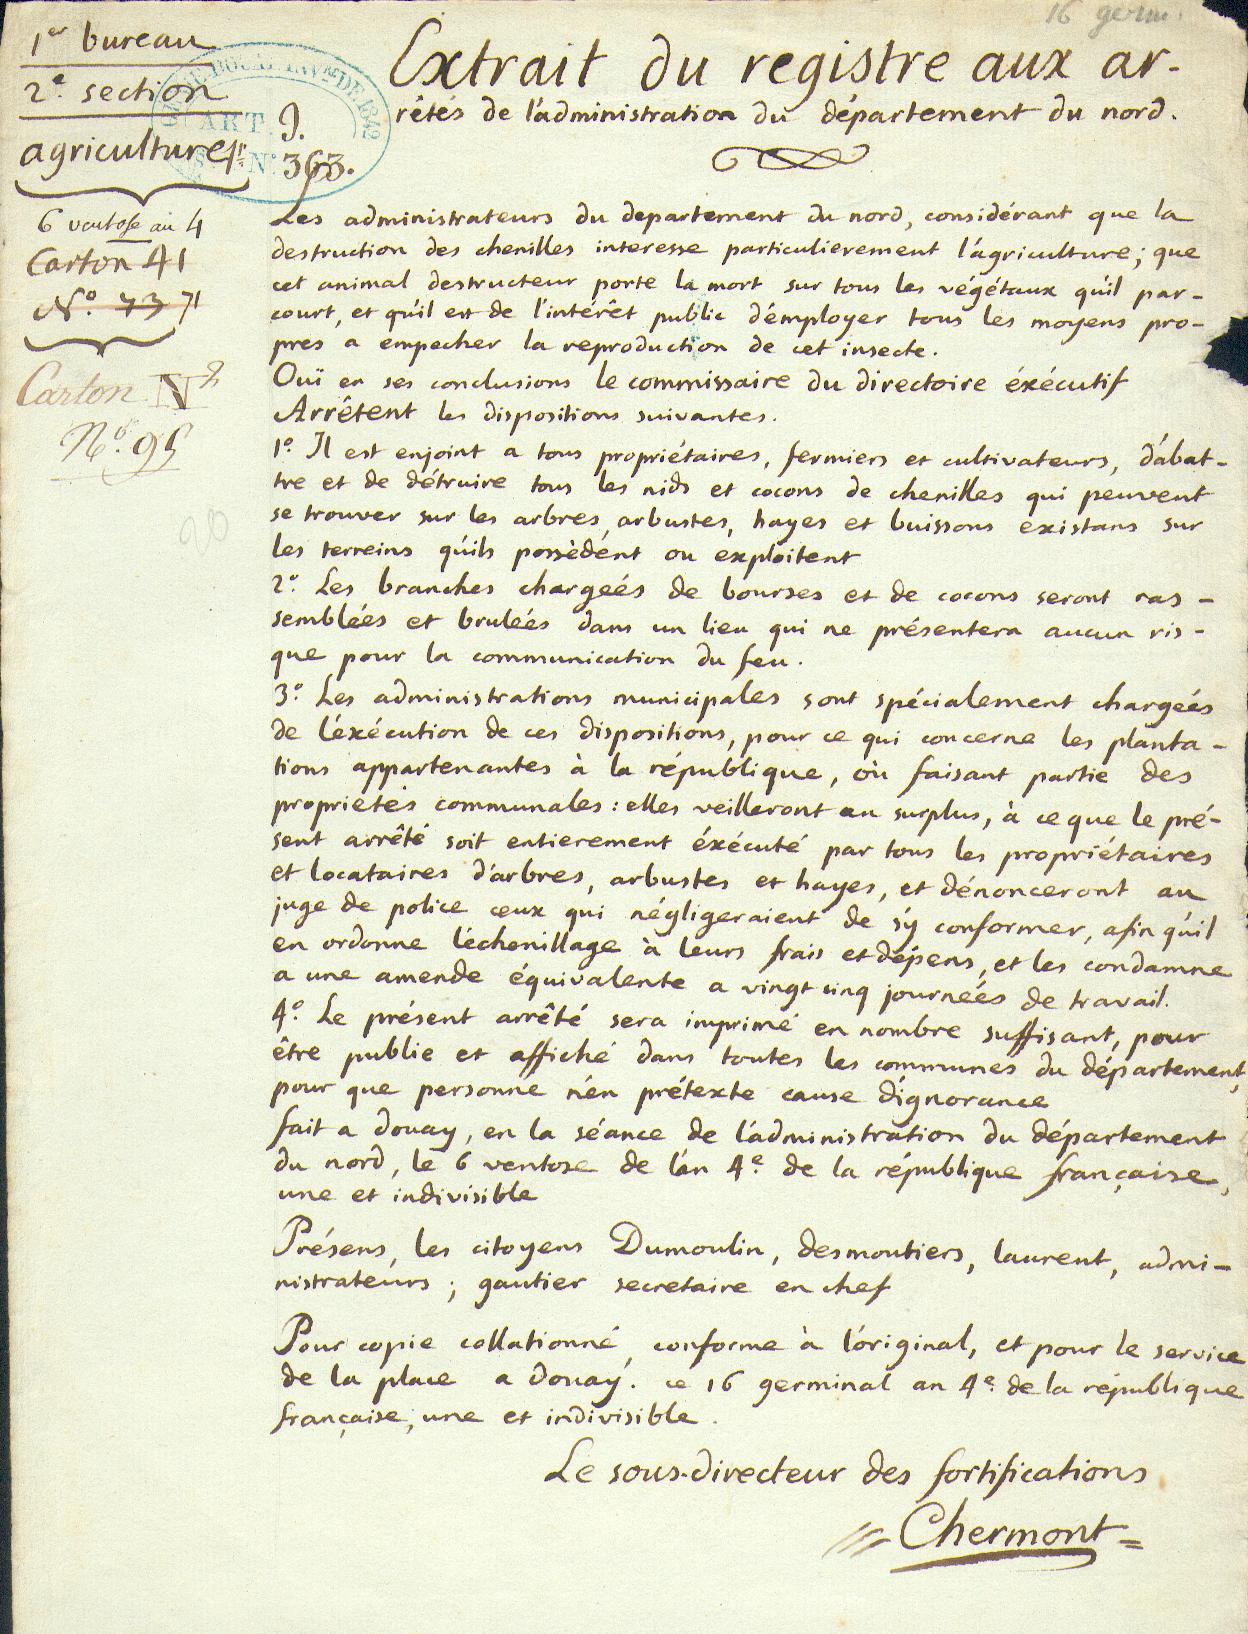 16 germ.
1er bureau
2e. section
agriculture
J.
363.
6 ventose an 4
Carton 41
N° 737
Carton N
N°. 95
Extrait du registre aux ar-
rêtés de l'administration du département du nord.
Les administrateurs du departement du nord, considérant que la
destruction des chenilles interesse particulierement l'agriculture; que
cet animal destructeur porte la mort sur tous les végétaux qu'il par-
court, et qu'il est de l'intérêt public d'émployer tous les moyens pro-
pres a empecher la reproduction de cet insecte.
Ouï en ses conclusions le commissaire du directoire éxécutif
Arrêtent les dispositions suivantes.
1°. Il est enjoint a tous propriétaires, fermiers et cultivateurs, d'abat-
tre et de détruire tous les nids et cocons de chenilles qui peuvent
se trouver sur les arbres, arbustes, hayes et buissons existans sur
les terreins qu'ils possèdént ou exploitent
2°. Les branches chargeés de bourses et de cocons seront ras-
semblées et bruleés dans un lieu qui ne présentera aucun ris-
que pour la communication du feu.
3°. Les administrations municipales sont spécialement chargeés
de l'éxécution de ces dispositions, pour ce qui concerne les planta-
tions appartenantes à la république, où faisant partie des
proprietés communales: elles veilleront au surplus, à ce que le pré-
sent arrêté soit entierement éxécuté par tous les propriétaires
et locataires d'arbres, arbustes et hayes, et dénonceront au
juge de police ceux qui négligeraient de s'y conformer, afin qu'il
en ordonne l'échenillage à leurs frais et dépens, et les condamne
a une amende équivalente a vingt cinq journeés de travail.
4°. Le présent arrêté sera imprimé en nombre suffisant, pour
être publie et affiché dans toutes les communes du département,
pour que personne n'en prétexte cause d'ignorance
fait a Douay, en la séance de l'administration du département
du nord, le 6 ventose de l'an 4e. de la république française,
une et indivisible
Présens, les citoyens Dumoulin, desmoutiers, laurent, admi-
nistrateurs; gautier secretaire en chef
Pour copie collationné, conforme à l'original, et pour le service
de la place a Douay. ce 16 germinal an 4e. de la république
française, une et indivisible.
Le sous-directeur des fortifications
Chermont